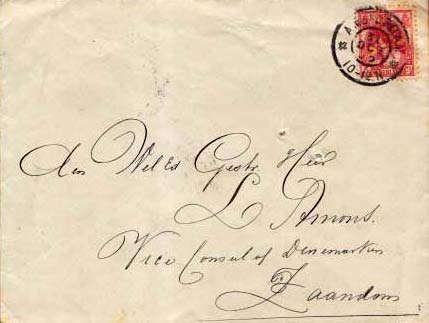 10-12 N
Den Wel Ed Gestr Heer
L Amons.
Vice Consul of Denemarken
te
Zaandam